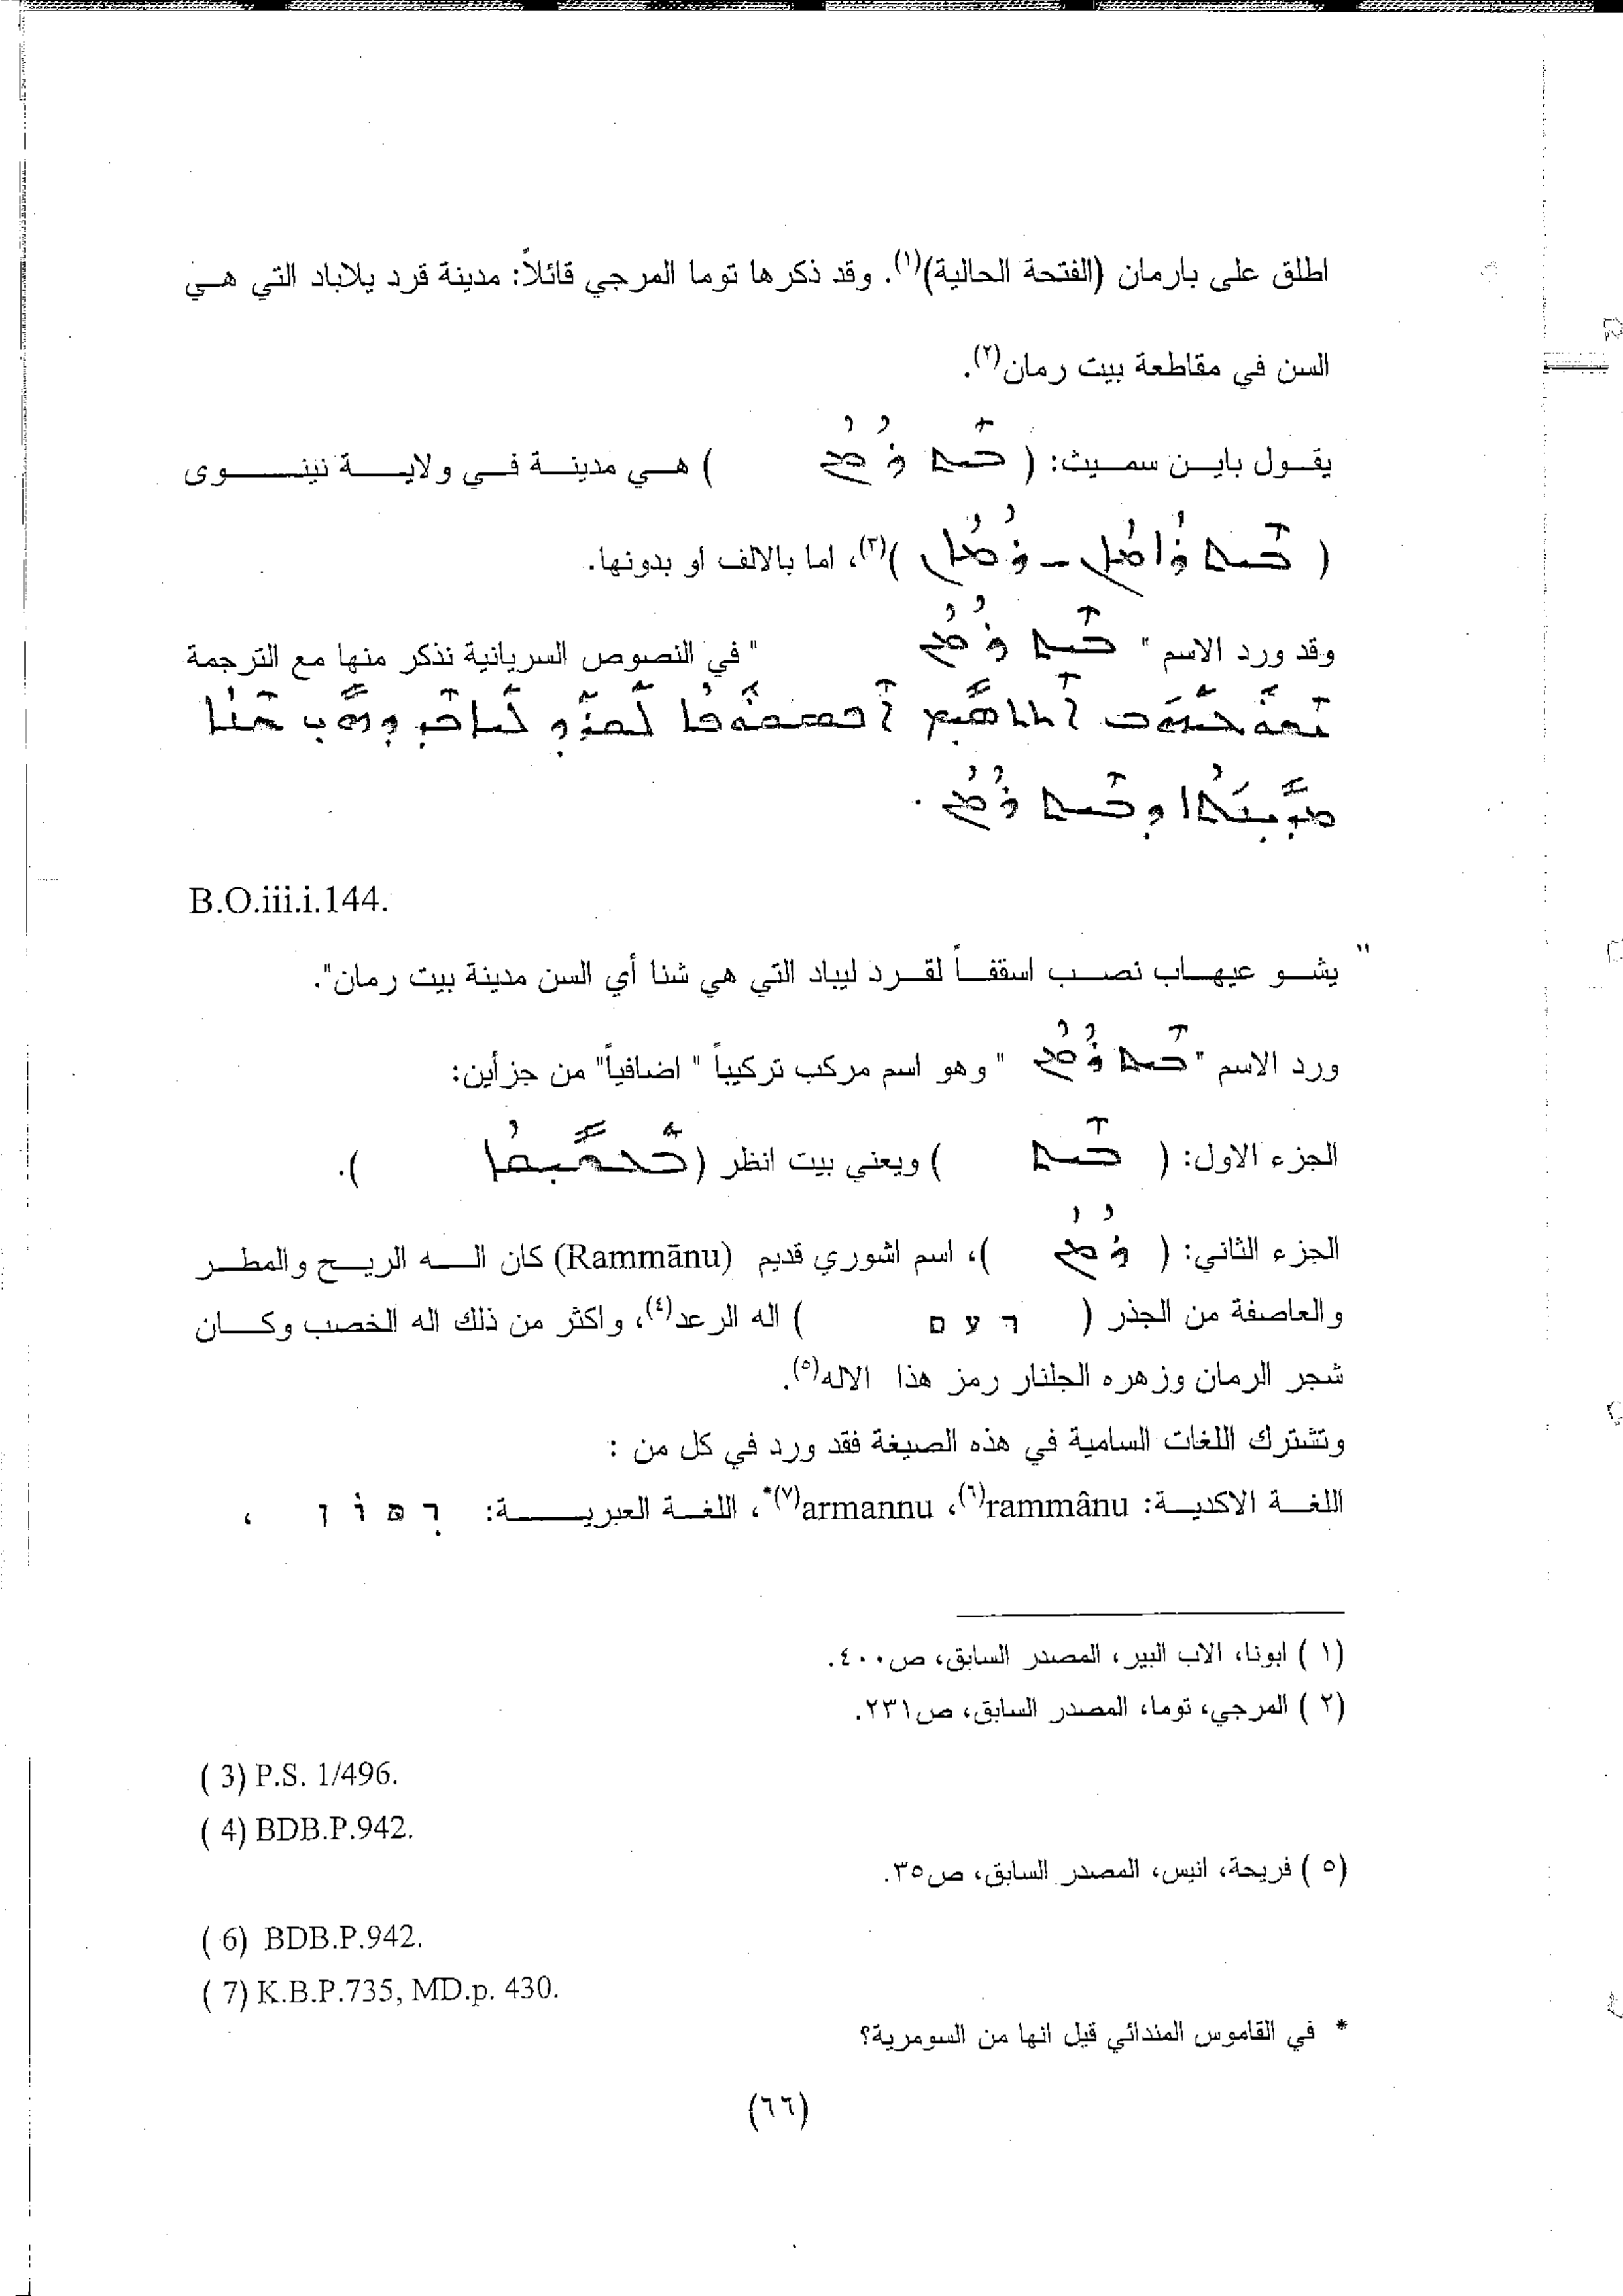 اطلق على بارمان (الفتحة الحالية)(١). وقد ذكرها توما المرجي قائلاً: مدينة قرد يلاباد التي هي
السن في مقاطعة بيت رمان(٢).
يقول باين سميث: ( ܒܝܬ ܪܡܢ ) هي مدينة في ولاية نينوى
( ܒܝܬ ܪܐܡܢ - ܪܡܢ )(٣)، اما بالالف او بدونها.
وقد ورد الاسم " ܒܝܬ ܪܡܢ " في النصوص السريانية نذكر منها مع الترجمة
ܡܕܝܢܬܐ ܕܒܝܬ ܪܡܢ .
B.O.iii.i.144.
" يشو عيهاب نصب اسقفاً لقرد ليباد التي هي شنا أي السن مدينة بيت رمان".
ورد الاسم " ܒܝܬ ܪܡܢ " وهو اسم مركب تركيباً " اضافياً" من جزأين:
الجزء الاول: ( ܒܝܬ ) ويعني بيت انظر ( ).
الجزء الثاني: ( ܪܡܢ )، اسم اشوري قديم (Rammānu) كان اله الريح والمطر
والعاصفة من الجذر ( ר ע ם ) اله الرعد(٤)، واكثر من ذلك اله الخصب وكان
شجر الرمان وزهره الجلنار رمز هذا الاله(٥).
وتشترك اللغات السامية في هذه الصيغة فقد ورد في كل من :
اللغة الاكدية: rammânu(٦)، armannu(٧)*، اللغة العبرية: ،
(١ ) ابونا، الاب البير، المصدر السابق، ص٤٠٠.
(٢ ) المرجي، توما، المصدر السابق، ص٢٣١.
( 3) P.S. 1/496.
( 4) BDB.P.942.
(٥ ) فريحة، انيس، المصدر السابق، ص٣٥.
( 6) BDB.P.942.
( 7) K.B.P.735, MD.p. 430.
* في القاموس المندائي قيل انها من السومرية؟
(٦٦)